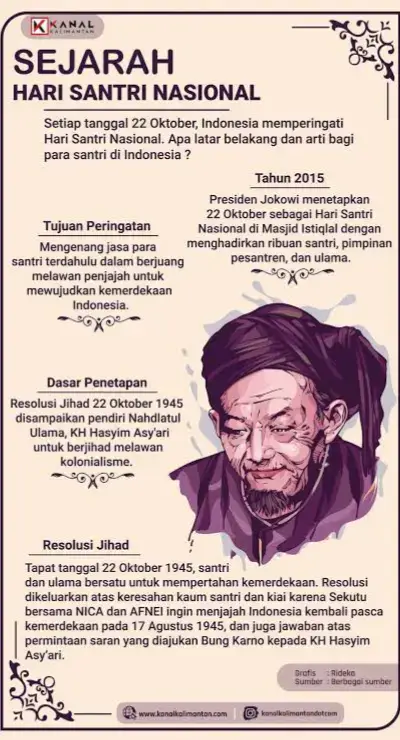 KANAL
KALIMANTAN
SEJARAH
HARI SANTRI NASIONAL
Setiap tanggal 22 Oktober, Indonesia memperingati
Hari Santri Nasional. Apa latar belakang dan arti bagi
para santri di Indonesia ?
Tahun 2015
Presiden Jokowi menetapkan
22 Oktober sebagai Hari Santri
Nasional di Masjid Istiqlal dengan
menghadirkan ribuan santri, pimpinan
pesantren, dan ulama.
Tujuan Peringatan
Mengenang jasa para
santri terdahulu dalam berjuang
melawan penjajah untuk
mewujudkan kemerdekaan
Indonesia.
Dasar Penetapan
Resolusi Jihad 22 Oktober 1945
disampaikan pendiri Nahdlatul
Ulama, KH Hasyim Asy'ari
untuk berjihad melawan
kolonialisme.
Resolusi Jihad
Tapat tanggal 22 Oktober 1945, santri
dan ulama bersatu untuk mempertahan kemerdekaan. Resolusi
dikeluarkan atas keresahan kaum santri dan kiai karena Sekutu
bersama NICA dan AFNEI ingin menjajah Indonesia kembali pasca
kemerdekaan pada 17 Agustus 1945, dan juga jawaban atas
permintaan saran yang diajukan Bung Karno kepada KH Hasyim
Asy'ari.
Grafis : Rideka
Sumber : Berbagai sumber
www.kanalkalimantan.com
kanalkalimantandotcom